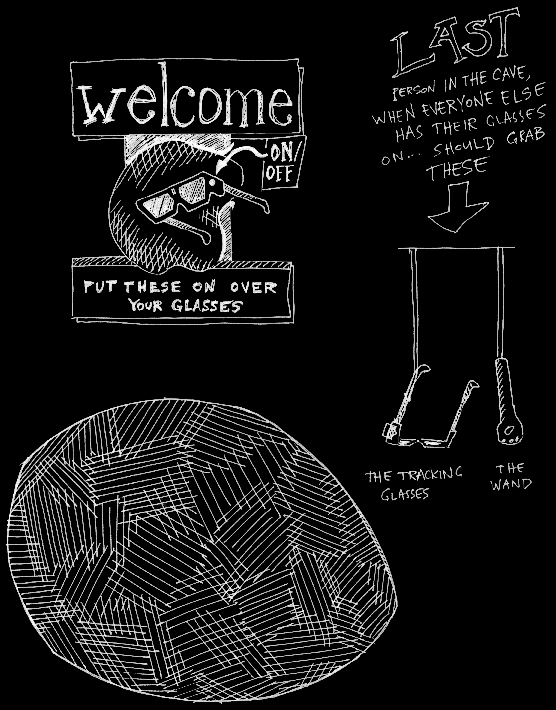 welcome
ON/
OFF
PUT THESE ON OVER
YOUR GLASSES
LAST
PERSON IN THE CAVE,
WHEN EVERYONE ELSE
HAS THEIR GLASSES
ON... SHOULD GRAB
THESE
THE TRACKING
GLASSES
THE
WAND